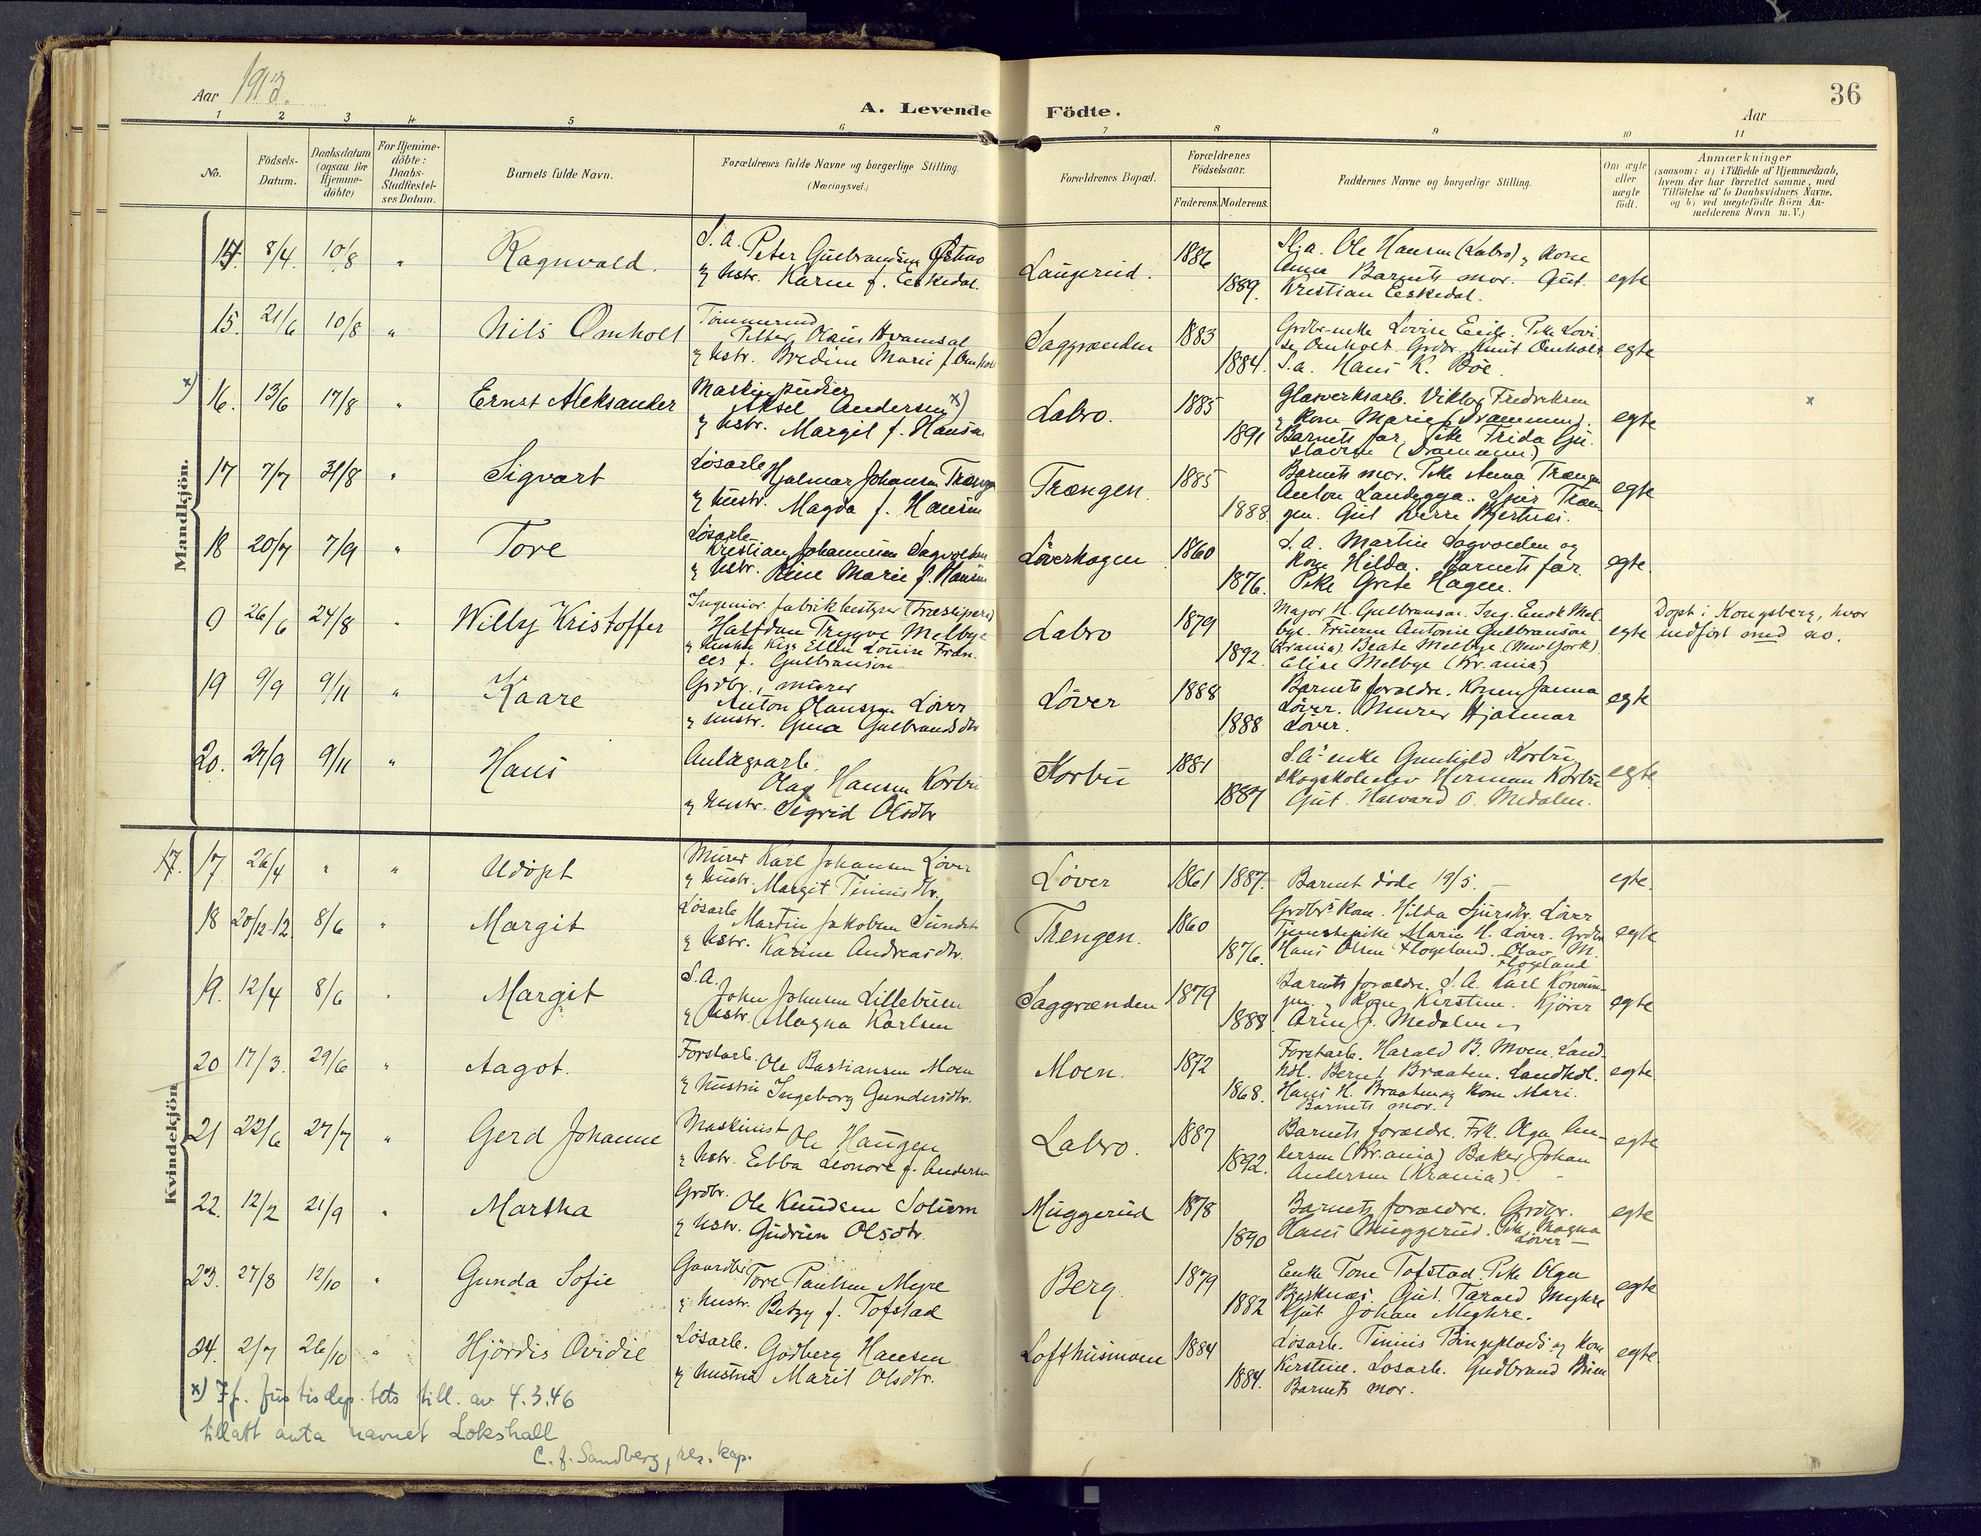 Aar 1913.
A. Levende Födte.
Aar
36
1 2 3 4 5 6 7 8 9 10 11
No.
Födsels-Datum.
Daabsdatum (ogsaa for Hjemmedöbte)
For Hjemmedöbte: Daabs-Stadfæstelses Datum.
Barnets fulde Navn.
Forældrenes fulde Navne og borgerlige Stilling (Næringsvei.)
Forældrenes Bopæl.
Forældrenes Födselsaar.
Faderens. Moderens.
Faddernes Navne og borgerlige Stilling.
Om ægte eller uægte födt.
Anmærkninger
(saasom: a) i Tilfælde af Hjemmedaab, hvem der har forrettet samme, med Tilföielse af to Daabsvidners Navne. og b) ved uegtefödte Börn Anmelderens Navn m. V.)
Mandkjön.
14. 8/4. 10/8 " Ragnvald.
S. a. Peter Gulbrandsen
& hstr. Karen f. Eskedal.
Laugerud. 1886 1889.
Ole Hansen (Labro) & kone
Anna Barnets mor. Gut.
Kristian Eskedal.
egte
15. 21/6 10/8 " Nils Omholt
Olaus Hvamsal
& hstr. Bredine Marie f. Omholt
Saggrænden 1883 1884.
Omholt. Grdbr. Knut Omholt
S.a. Hans K. Böe.
egte
x) 16. 13/6 17/8 " Ernst Aleksander
Aksel Andersen x)
& hstr. Margit f. Hansen
Labro. 1885 1891
Glasverksarb. Viktor Fredriksen
& kone Marie (Drammen).
Barnets far, Pike Frida Gustavsen (Drammen)
egte
x
17 7/7 31/8 " Sigvart
Løsarb. Hjalmar Johansen Trængen
& hustr. Magda f. Hansen
Trængen. 1885 1888
Barnets mor. Pike Anna Trængen
Anton Landsgga.
egte
18 20/7 7/9 " Tore
Løsarb.
Kristian Johannesen Sagvolden
& hstr. Marie f. Hansen
Løverhagen 1860 1876.
S. A. Martin Sagvolden og
kone Hilda. Barnets far.
Pike Grete Hagen.
egte
9 26/6 24/8 " Willy Kristoffer
Ingeniør. fabrikbestyrer (Træsliperi)
Halfdan Trygve Melbye
& hustru Ellen Louise Frances f. Gulbranson
Labro 1879 1892.
Major H. Gulbranson. Ing. Melbye. Fruerne Antonie Gulbranson
(Krania) Beate Melbye (New York)
Elise Melbye (Kr.ania)
egte
Döpt i Kongsberg, hvor
indført med no.
19 9/9 9/11 " Kaare
Grdbr., murer
Anton Olaussen Løver
& hustr. Gina Gulbrandsdtr
Løver 1888 1888
Barnets forældre. Konen Janna
Løver. Murer Hjalmar
Løver.
egte
20. 27/9 9/11 " Hans
Anlægsarb.
Olag Hansen Korbu
& hustr. Sigrid Olsdtr
Korbu 1881 1887
S.A's enke Gunhild Korbu
Skogskoleelev Herman Korbu
Gut. Halvard O. Medalen.
egte
Kvindekjön
17. 17 26/4 " " Udöpt
Murer Karl Johansen Løver
& hustr. Margit Tiniusdtr.
Løver 1861 1887.
Barnet döde 19/5.
egte.
18 20/12 12 8/6 " Margit
Løsarb. Martin Jakobsen
& hstr. Karine Andreasdtr.
Trengen. 1860 1876.
Grdbr's kone. Hilda Sjursdtr. Löver
Tjenestepike Marie H. Löver. Grdbr.
Hans Olsen Flogeland. Olav M.
Flogeland
egte
19. 12/4 8/6 " Margit
S. A.
John Johnsen Lillebuen
& hstr. Magna Karlsen
Saggrænden 1879 1888
Barnets forældre. S. A. Karl
& kone Kirstine.
J. Medalen
egte
20 17/3. 29/6 " Aagot.
Forstarb. Ole Bastiansen Moen
& hustru Ingeborg Gundersdtr.
Moen. 1872 1868.
Forstarb. Harald B. Moen. Landhdl. Bernt Braaten. Landhdl.
Hans H. Braaten og kone Mari.
Barnets mor.
egte.
21 22/6 27/7 " Gerd Johanne
Maskinist Ole Haugen
& hstr. Ebba Leonora f. Andersen
Labro. 1887 1892.
Barnets forældre. Frk. Olga Andersen (Kr.ania) Baker Johan
Andersen (Krania).
egte
22. 12/2 21/9 " Martha
Grdbr. Ole Knudsen Solum
& hstr. Gudrun Olsdtr.
Muggerud 1878 1890
Barnets forældre. Grdbr.
Hans Muggerud. Pike Magna
Løver
egte
23. 27/8 12/10 " Gunda Sofie
Gaardbr. Tore Paulsen Myre
& hustr. Betzy f. Tofstad
Berg. 1879 1882
Enke Tone Tofstad. Pike Olga
Gut. Tarald Myhre
Gut Johan Myhre.
egte
24. 2/7 26/10 " Hjördis Ovidie
Løsarb. Godberg Hansen
& hustru Marit Olsdtr.
Lofthusmoen 1884 1884.
Løsarb. Tinius Bingeplads og kone
Kirstine. Løsarb. Gudbrand
Barnets mor.
egte
x) If. justisdep.tets till. av 4.3.46
tillatt anta navnet Lokshall
C. f. Sandberg, res. kap.